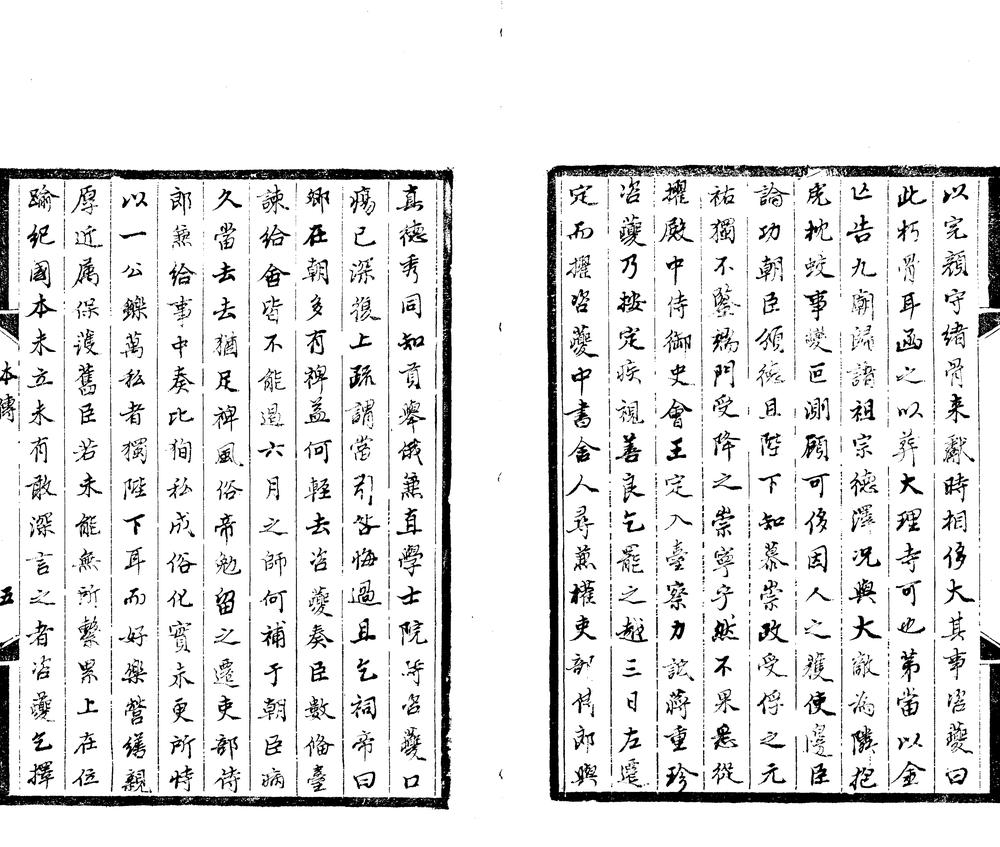 以完顏守緒骨来獻時相侈大其事洛夔曰
此朽骨耳函之以葬大理寺可也第當以金
亾告九廟歸諸祖宗德澤况與大敵為隣抱
虎枕蛟事變叵測顧可侈因人之獲使邊臣
論功朝臣頌德且陛下知慕崇政受俘之元
祐獨不鑒端門受降之崇寧乎然不果悉從
擢殿中侍御史會王定入臺察力詆蔣重珍
咨夔乃按定疾視善良乞罷之越三日左遷
定而擢咨夔中書舍人尋兼權吏部侍郎與
真德秀同知貢舉俄兼直學士院時咨夔口
瘍已深復上疏謂當引咎悔過且乞祠帝曰
卿在朝多有裨益何輕去咨夔奏臣數偹臺
諫給會皆不能過六月之師何補于朝臣病
久當去去猶足裨風俗帝勉留之遷吏部侍
郎兼給事中奏比狥私成俗化實未更所恃
以一公鑠萬私者獨陛下耳而好樂營繕親
厚近属保護舊臣若未能無所繫累上在位
踰紀國本未立未有敢深言之者咨夔乞擇
本傳
五